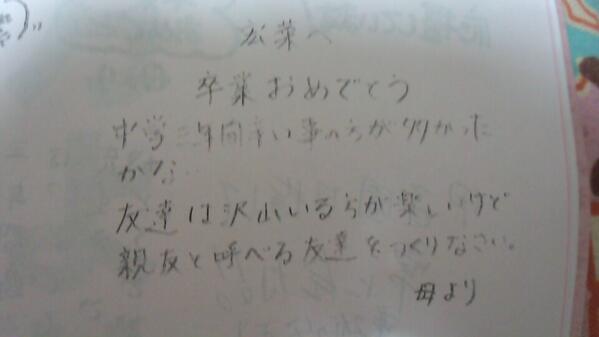 広菜へ
卒業おめでとう
中学三年間辛い事のらが多かった
かな…
友達は沢山いるらが楽しいけど
親友と呼べる友達をつくりなさい。
母より